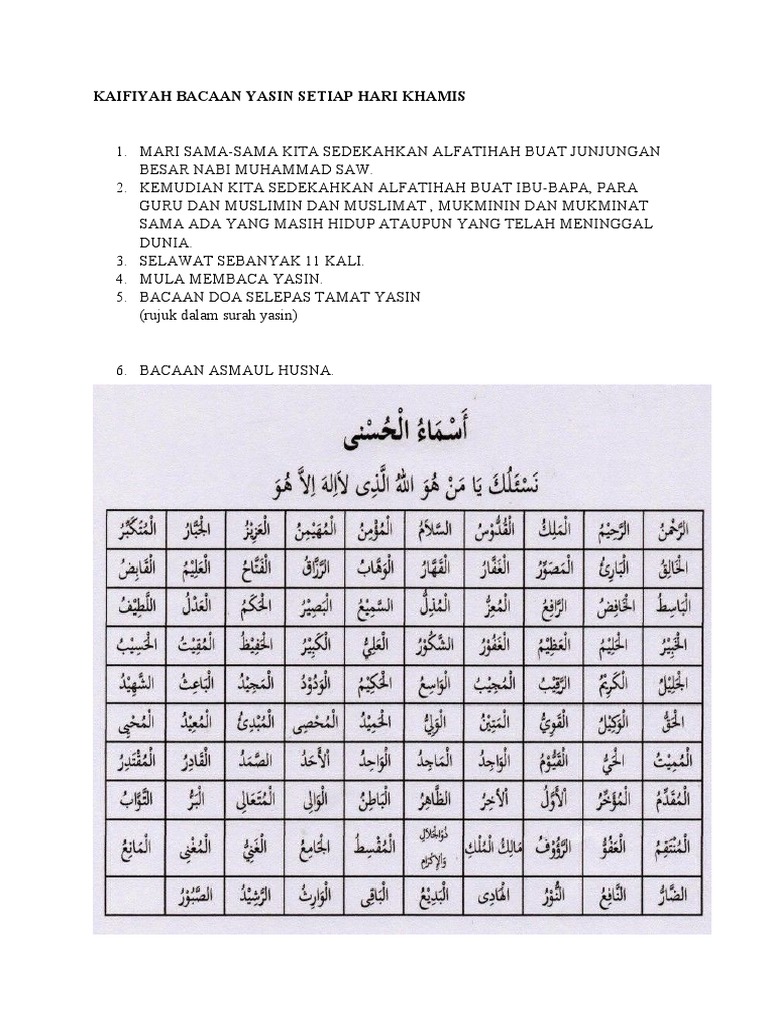 KAIFIYAH BACAAN YASIN SETIAP HARI KHAMIS
1. MARI SAMA-SAMA KITA SEDEKAHKAN ALFATIHAH BUAT JUNJUNGAN
BESAR NABI MUHAMMAD SAW.
2. KEMUDIAN KITA SEDEKAHKAN ALFATIHAH BUAT IBU-BAPA, PARA
GURU DAN MUSLIMIN DAN MUSLIMAT , MUKMININ DAN MUKMINAT
SAMA ADA YANG MASIH HIDUP ATAUPUN YANG TELAH MENINGGAL
DUNIA.
3. SELAWAT SEBANYAK 11 KALI.
4. MULA MEMBACA YASIN.
5. BACAAN DOA SELEPAS TAMAT YASIN
(rujuk dalam surah yasin)
6. BACAAN ASMAUL HUSNA.
أَسْمَاءُ الْحُسْنى
نَسْئَلُكَ يَا مَنْ هُوَ اللهُ الَّذِى لَاۤاِلهَ اِلاَّ هُوَ
الرَّحْمنُ الرَّحِيْمُ الْمَلِكُ الْقُدُّوْسُ السَّلاَمُ الْمُؤْمِنُ الْمُهَيْمِنُ الْعَزِيْزُ الْجَبَّارُ الْمُتَكَبِّرُ
الْخَالِقُ الْبَارِئُ الْمُصَوِّرُ الْغَفَّارُ الْقَهَّارُ الْوَهَّابُ الرَّزَّاقُ الْفَتَّاحُ الْعَلِيْمُ الْقَابِضُ
الْبَاسِطُ الْخَافِضُ الرَّافِعُ الْمُعِزُّ الْمُذِلُّ السَّمِيْعُ الْبَصِيْرُ الْحَكَمُ الْعَدْلُ اللَّطِيْفُ
الْخَبِيْرُ الْحَلِيْمُ الْعَظِيْمُ الْغَفُوْرُ الشَّكُوْرُ الْعَلِيُّ الْكَبِيْرُ الْحَفِيْظُ الْمُقِيْتُ الْحَسِيْبُ
الْجَلِيْلُ الْكَرِيْمُ الرَّقِيْبُ الْمُجِيْبُ الْوَاسِعُ الْحَكِيْمُ الْوَدُوْدُ الْمَجِيْدُ الْبَاعِثُ الشَّهِيْدُ
الْحَقُّ الْوَكِيْلُ الْقَوِيُّ الْمَتِيْنُ الْوَلِيُّ الْحَمِيْدُ الْمُحْصِى الْمُبْدِئُ الْمُعِيْدُ الْمُحْيِى
الْمُمِيْتُ الْحَيُّ الْقَيُّوْمُ الْوَاجِدُ الْمَاجِدُ الْوَاحِدُ اْلأَحَدُ الصَّمَدُ الْقَادِرُ الْمُقْتَدِرُ
الْمُقَدِّمُ الْمُؤَخِّرُ اْلأَوَّلُ اْلآخِرُ الظَّاهِرُ الْبَاطِنُ الْوَالِى الْمُتَعَالِى الْبَرُّ التَّوَّابُ
الْمُنْتَقِمُ الْعَفُوُّ الرَّؤُوْفُ مَالِكُ الْمُلْكِ ذُوالْجَلاَلِ وَاْلإِكْرَامِ الْمُقْسِطُ الْجَامِعُ الْغَنِيُّ الْمُغْنِى الْمَانِعُ
الضَّارُّ النَّافِعُ النُّوْرُ الْهَادِى الْبَدِيْعُ الْبَاقِى الْوَارِثُ الرَّشِيْدُ الصَّبُوْرُ